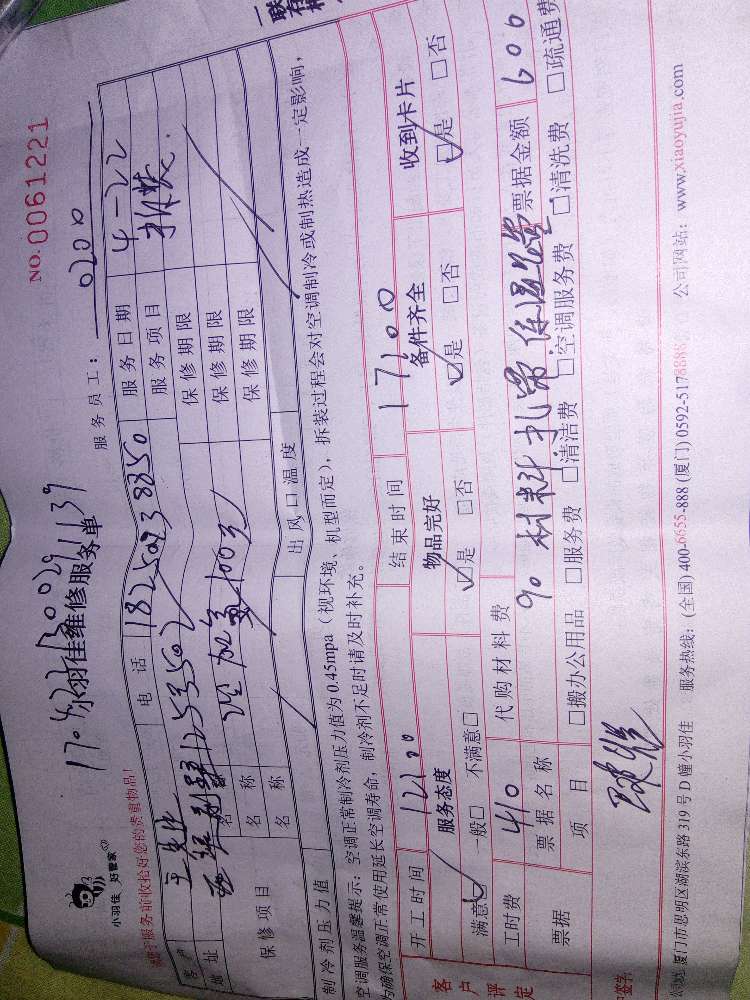 NO.0061221
一联
小羽佳 好管家
小羽佳维修服务单
服务员工：0200
请于服务前收拾好您的贵重物品！
客户 王先生 电话 18250938350 服务日期 4-22
地址 125号502 服务项目 拆装
保修项目 名称 加氟100元 保修期限
名称 保修期限
名称 保修期限
制冷剂压力值 出风口温度
空调服务温馨提示：空调正常制冷剂压力值为0.45mpa（视环境、机型而定），拆装过程会对空调制冷或制热造成一定影响，
为确保空调正常使用延长空调寿命，制冷剂不足时请及时补充。
开工时间 12:00 结束时间 17:00
客户评定 服务态度 物品完好 备件齐全 收到卡片
满意☑ 一般□ 不满意□ ☑是 □否 ☑是 □否 ☑是 □否
工时费 410 代购材料费 90 材料扎带保温管 票据金额 600
票据 票据名称
项目 □搬办公用品 □服务费 □清洁费 □空调服务费 □清洗费 □疏通费
签字
厦门市思明区湖滨东路319号D幢小羽佳 服务热线：(全国) 400-6655-888 (厦门) 0592-5178888 公司网站：www.xiaoyujia.com